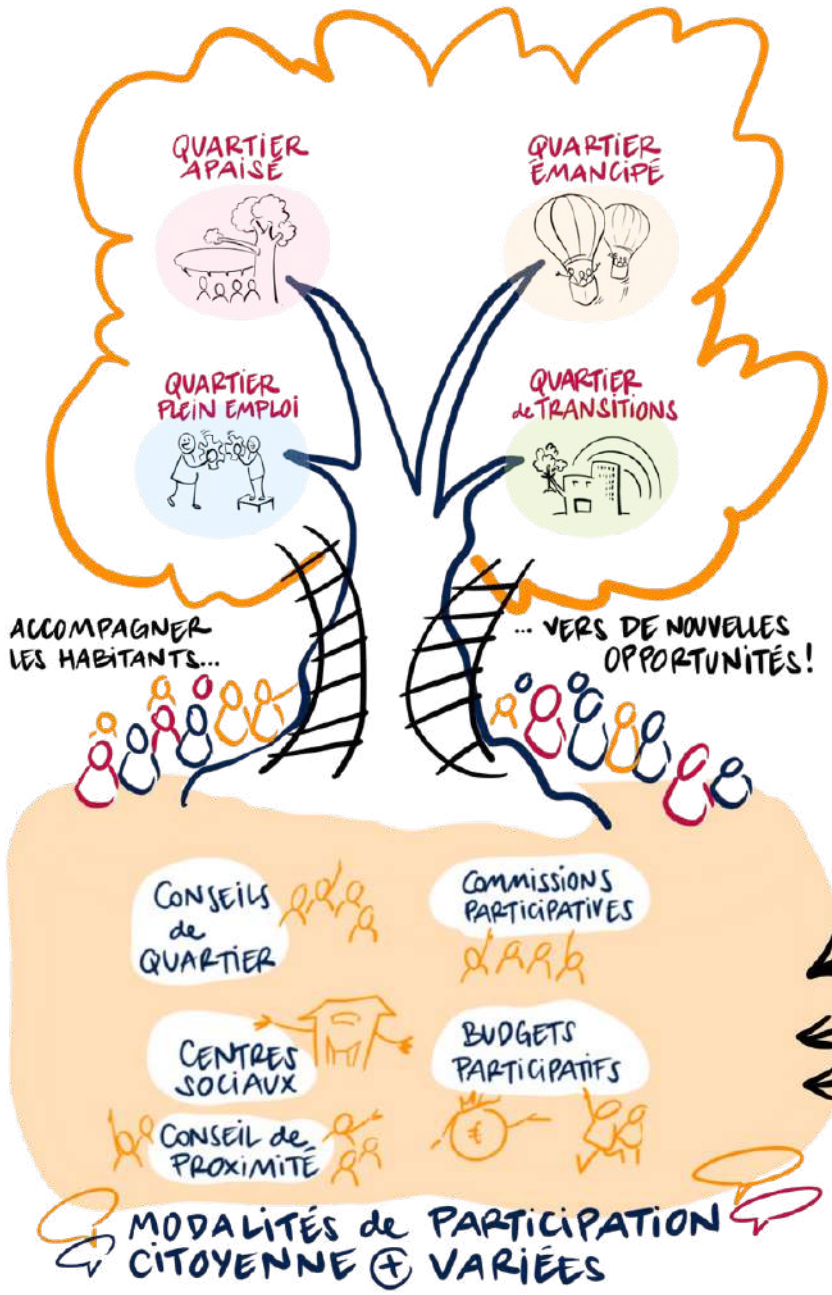 QUARTIER
APAISÉ
QUARTIER
ÉMANCIPÉ
QUARTIER
PLEIN EMPLOI
QUARTIER
de TRANSITIONS
ACCOMPAGNER
LES HABITANTS...
... VERS DE NOUVELLES
OPPORTUNITÉS!
CONSEILS
de
QUARTIER
COMMISSIONS
PARTICIPATIVES
CENTRES
SOCIAUX
BUDGETS
PARTICIPATIFS
€
CONSEIL de
PROXIMITÉ
MODALITÉS de PARTICIPATION
CITOYENNE + VARIÉES